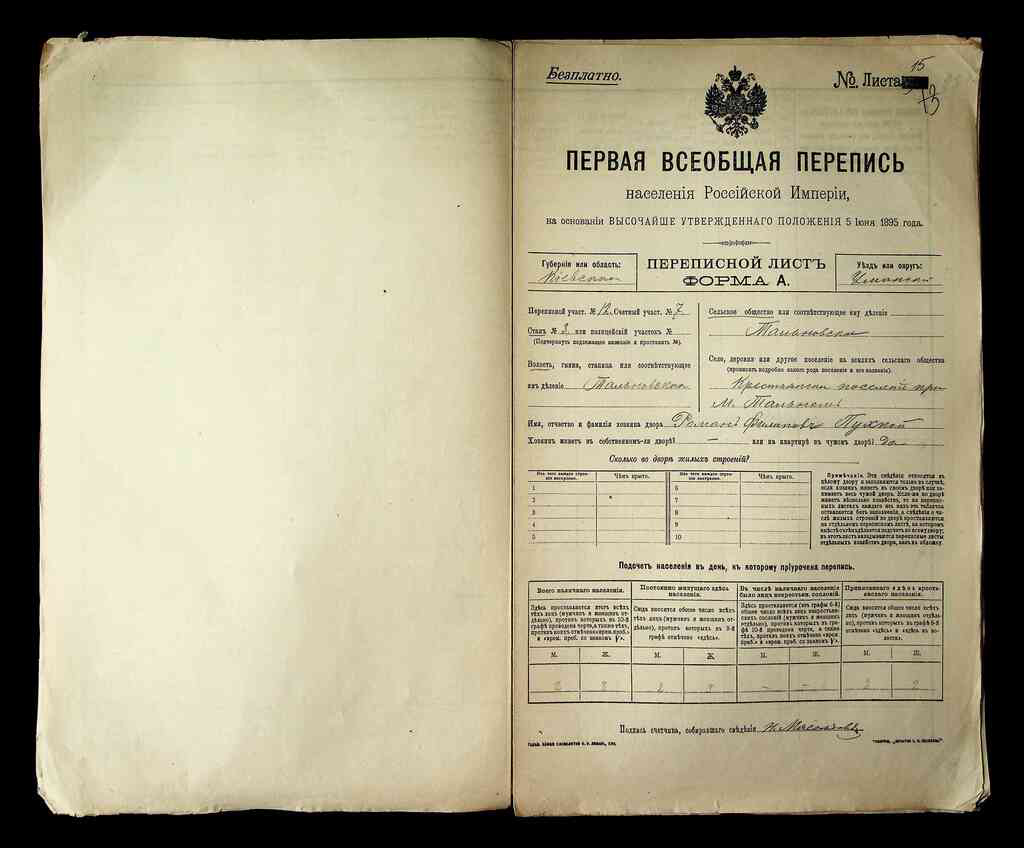 Безплатно.
№ Листа 15
13
ПЕРВАЯ ВСЕОБЩАЯ ПЕРЕПИСЬ
населенія Россійской Имперіи,
на основаніи ВЫСОЧАЙШЕ УТВЕРЖДЕННАГО ПОЛОЖЕНІЯ 5 Іюня 1895 года.
Губернія или область:
Кіевская
ПЕРЕПИСНОЙ ЛИСТЪ
ФОРМА А.
Уѣздъ или округъ:
Уманскій
Переписной участ. № 12. Счетный участ. № 7
Станъ № 3 или полицейскій участокъ №
(Подчеркнуть подлежащее названіе и проставить №).
Волость, гмина, станица или соотвѣтствующее
имъ дѣленіе Тальновская
Сельское общество или соотвѣтствующее ему дѣленіе
Тальновское
Село, деревня или другое поселеніе на земляхъ сельскаго общества
(прописать подробно какого рода поселеніе и его названіе).
при
м.
Имя, отчество и фамилія хозяина двора Романъ Филиповъ
Хозяинъ живетъ въ собственномъ-ли дворѣ? — или на квартирѣ въ чужомъ дворѣ? Да
Сколько во дворѣ жилыхъ строеній?
Изъ чего каждое строеніе построено.
Чѣмъ крыто.
Изъ чего каждое строеніе построено.
Чѣмъ крыто.
1 6
2 7
3 8
4 9
5 10
Примѣчаніе. Эти свѣдѣнія относятся къ
цѣлому двору и заполняются только въ случаѣ,
если хозяинъ живетъ въ своемъ дворѣ или за-
нимаетъ весь чужой дворъ. Если-же во дворѣ
живетъ нѣсколько хозяйствъ, то на перепис-
ныхъ листахъ каждаго изъ нихъ эта табличка
оставляется безъ заполненія, а свѣдѣнія о чи-
слѣ жилыхъ строеній во дворѣ проставляются
на отдѣльномъ переписномъ листѣ, на которомъ
вмѣстѣ съ тѣмъ дѣлается подсчетъ по всему двору;
въ этотъ листъ вкладываются переписные листы
отдѣльныхъ хозяйствъ двора, какъ въ обложку.
Подсчетъ населенія въ день, къ которому пріурочена перепись.
Всего наличнаго населенія.
Здѣсь проставляется итогъ всѣхъ
тѣхъ лицъ (мужчинъ и женщинъ от-
дѣльно), противъ которыхъ въ 10-й
графѣ проведена черта, а также тѣхъ,
противъ коихъ отмѣчено «врем. проб.»
и «врем. преб. со знакомъ V».
Постоянно живущаго здѣсь
населенія.
Сюда вносится общее число всѣхъ
тѣхъ лицъ (мужчинъ и женщинъ от-
дѣльно), противъ которыхъ въ 9-й
графѣ отмѣчено «здѣсь».
Въ числѣ наличнаго населенія
было лицъ некрестьян. сословій.
Здѣсь проставляется (изъ графы 6-й)
общее число всѣхъ лицъ некрестьян-
скихъ сословій (мужчинъ и женщинъ
отдѣльно), противъ которыхъ въ гра-
фѣ 10-й проведена черта, а также
тѣхъ, противъ коихъ отмѣчено «врем.
преб.» и «врем. преб. со знакомъ V».
Приписаннаго здѣсь кресть-
янскаго населенія.
Сюда вносится общее число всѣхъ
лицъ (мужчинъ и женщинъ отдѣль-
но), противъ которыхъ въ графѣ 8-й
отмѣчено «здѣсь» и «здѣсь въ во-
лости».
М. Ж. М. Ж. М. Ж. М. Ж.
— — 2 2
Подпись счетчика, собиравшаго свѣдѣнія